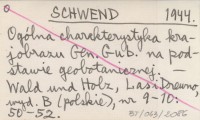 SCHWEND 1944.
Ogólna charakterystyka kra-
jobrazu Gen. Gub. na pod-
stawie geobotanicznej. —
Wald und Holz, Las i Drewno,
wyd. B (polskie), nr 9-10:
50-52.